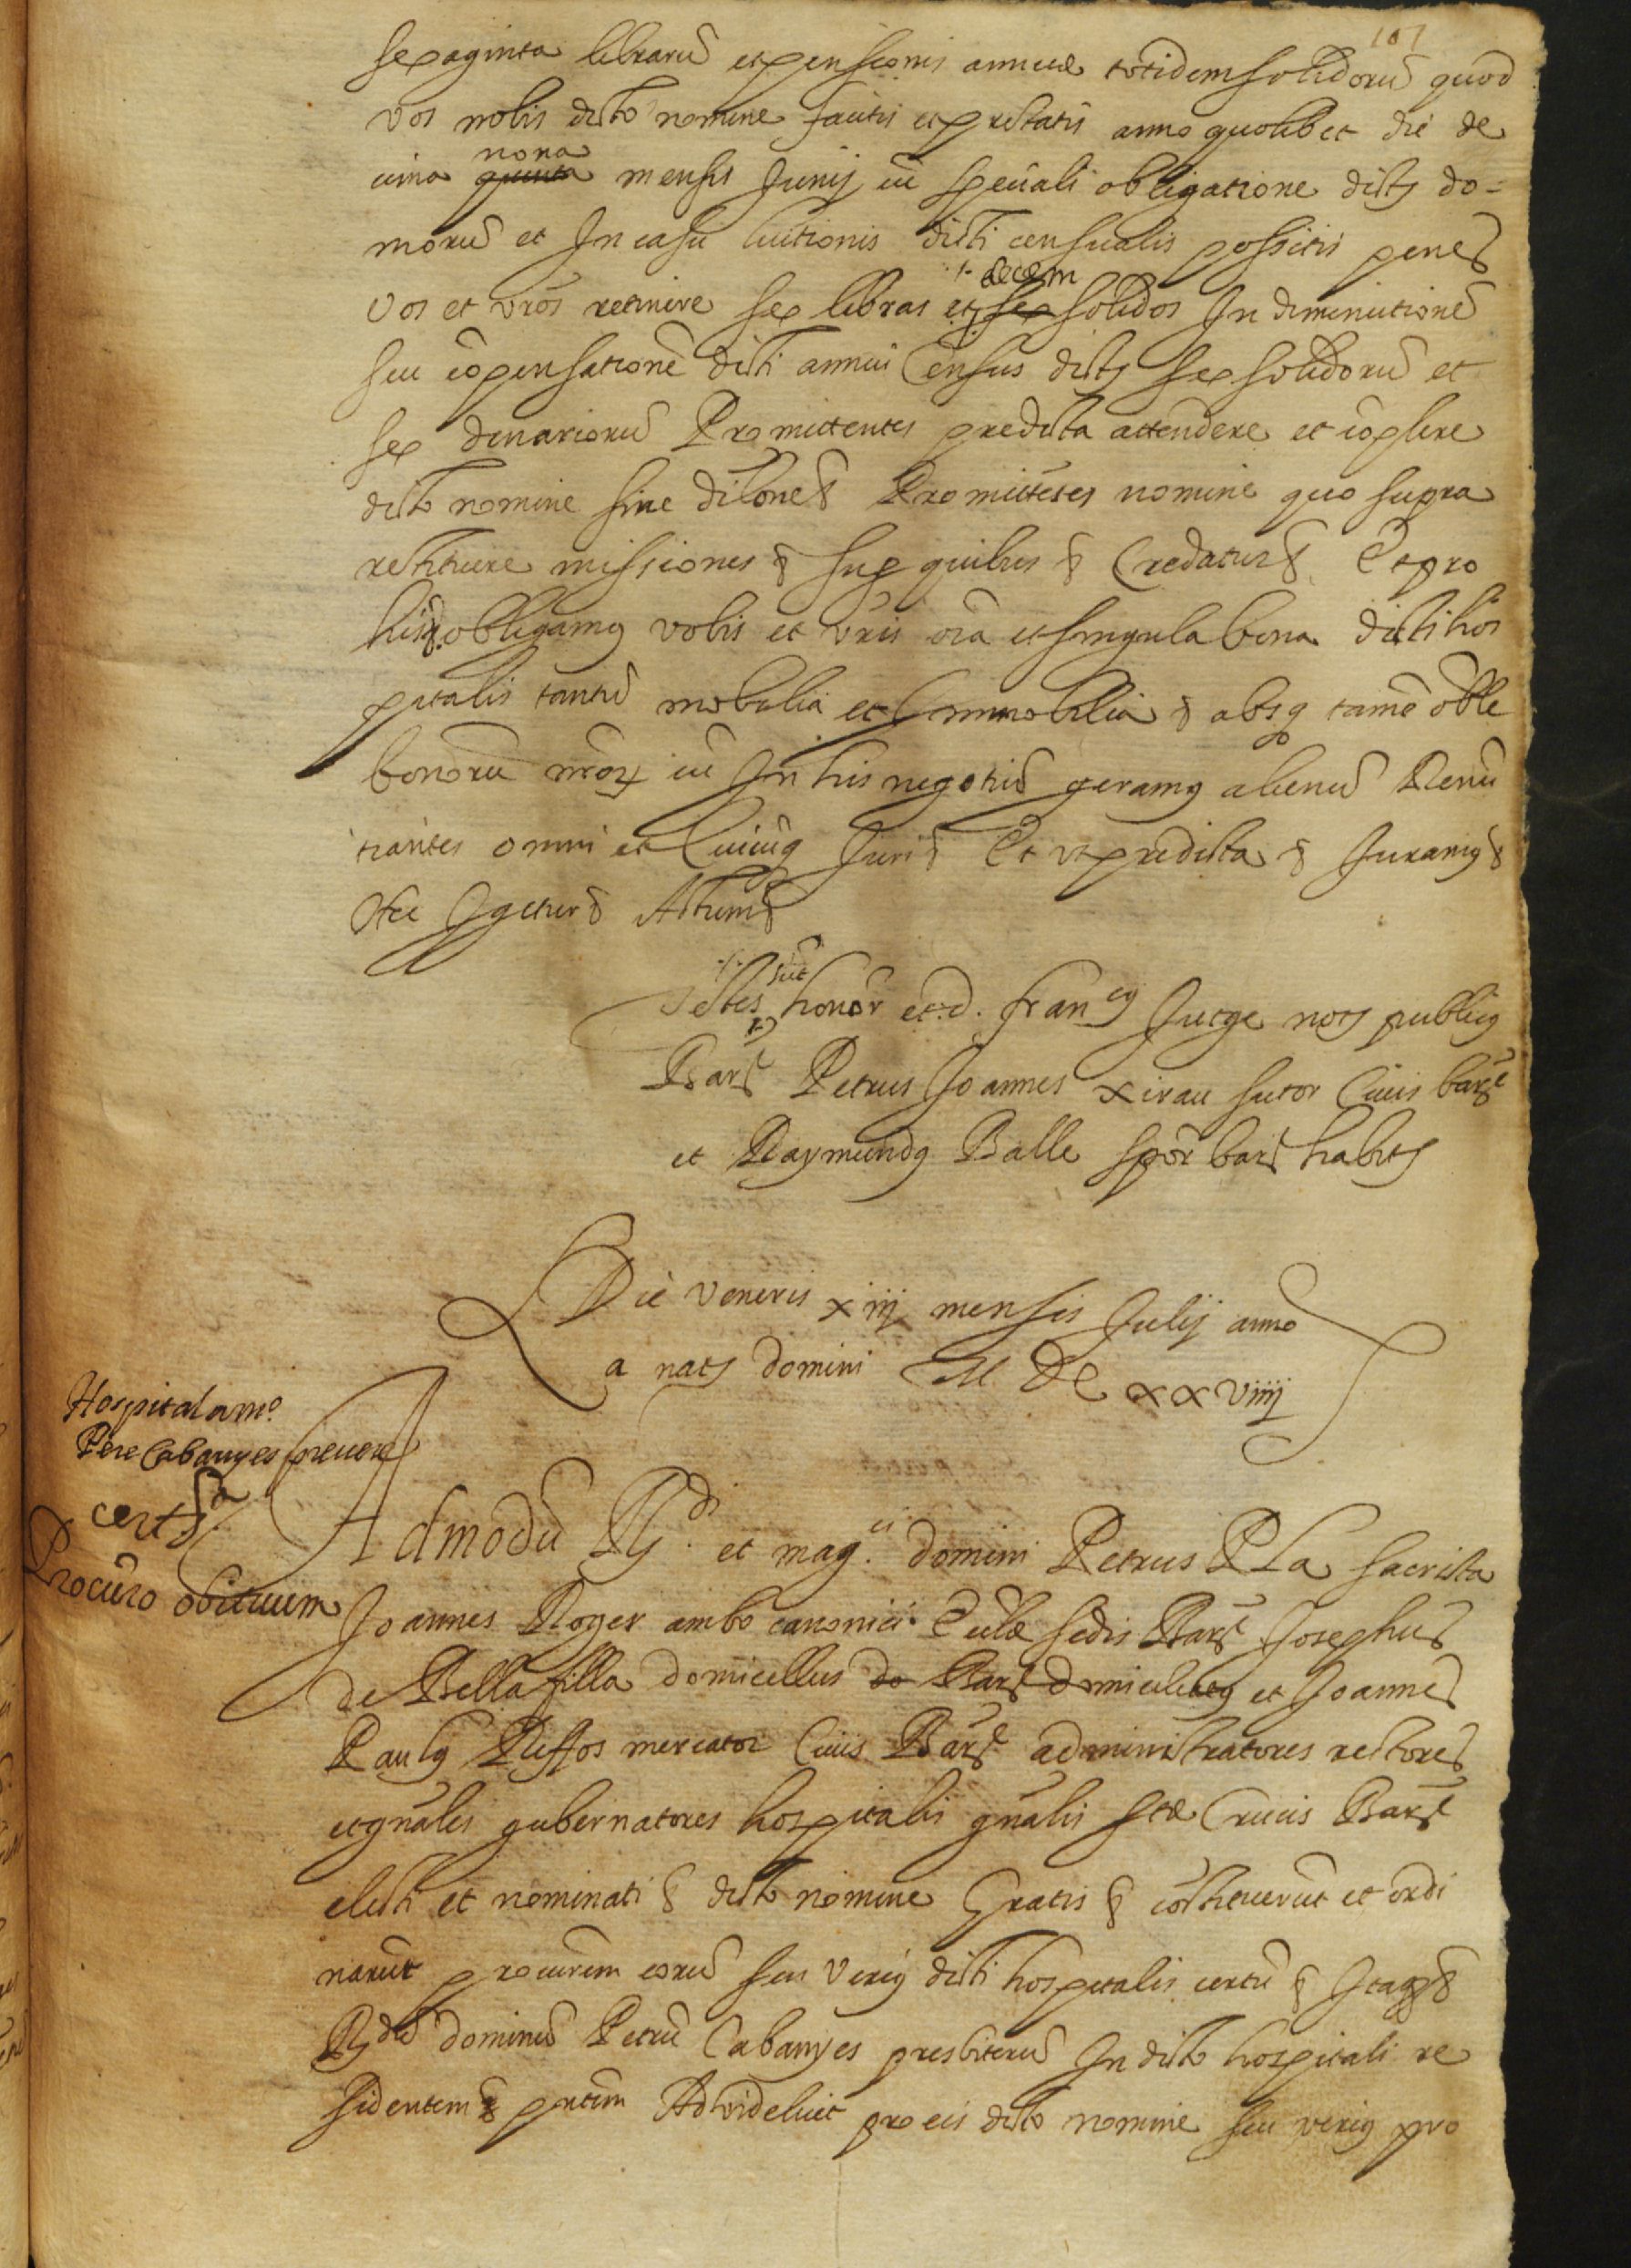 107
sexaginta librarū et pensionis annue totidem solidorū quod
vos nobis dicto nomine facitis et prestatis anno quolibet die de
nona
cima quinta mensis Junij cū speciali obligatione dictȝ do=
morū et In casu luitionis dicti censualis possitis penes
decem
vos et vrōs retinere sex libras et sex solidos In diminutionē
seu cōpensationē dicti annui Census dictȝ sex solidorū et
sex denariorū Promittentes predicta attendere et cōplere
dicto nomine sine dilōne & Promittētes nomine quo supra
restituere missiones & sup quibus & Credatur & Et pro
his & obligamꝰ vobis et vrīs oīa et singula bona dicti hos
pitalis tantū mobilia et Immobilia & absq tamē oblē
bonorū nrōꝝ cū In his negotiū geramꝰ alienū Renū
tiantes omni et Cuicūq Juri & Et ut predicta & Juramꝰ &
Hec Igitur & Actum &
sūt
Testes honor et d. franᶜꝰ Jutge notȝ publicꝰ
Barᵉ Petrus Joannes xirau sutor Ciuis barᵉ
et Raymundꝰ Balle spōr barᵉ habitȝ
Die veneris xiij mensis Julij anno
a natȝ domini M DC xxviiij
Hospital amᵒ
Pere Cabanyes preuere
certȝ
Procūro obituum
Admodū Rȝᵈⁱ et mag.ᶜⁱ domini Petrus Pla sacrista
Joannes Roger ambo canonici Ecclæ sedis Barᵉ Josephus
de Bellafilla domicellus do Barᵉ domiciliatꝰ et Joannes
Paulꝰ Riffos mercator Ciuis Barᵉ administratores rectores
et gnāles gubernatores hospitalis gnālis Stæ Crucis Barᵉ
electi et nominati & dicto nomine Gratis & cōstituerūt et ordi
narūt procurēm eorū seu veriꝰ dicti hospitalis certū & Itaqȝ &
Rȝᵈū dominū Petrū Cabanyes presbiterū In dicto hospitali re
sidentem & pntēm Ad videlicet pro eis dicto nomine seu veriꝰ pro